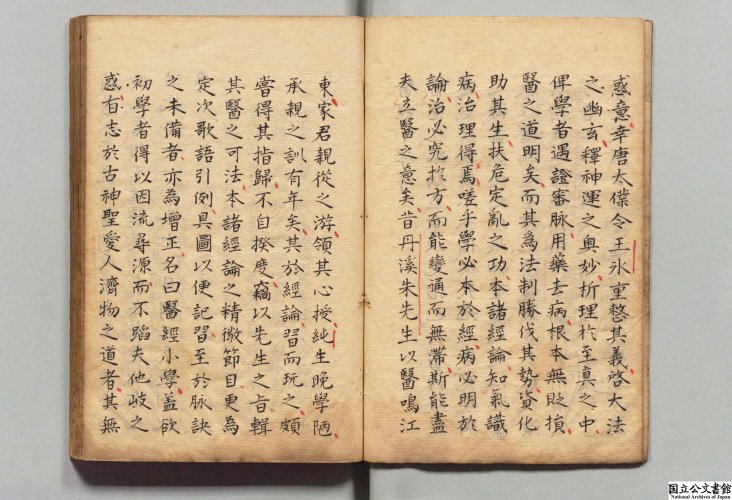 惑意幸唐太僕令王氷重整其義啓大法
之幽玄釋神運之奥妙折理於至真之中
俾學者遇證審脉用藥去病根本無貶損
醫之道明矣而其為法制勝伐其勢資化
助其生扶危定亂之功本諸經論知氣識
病治理得焉嗟乎學必本於經病必明於
論治必究於方而能變通而無滯斯能盡
夫立醫之意矣昔丹溪朱先生以醫鳴江
東家君親從之游領其心授純生晚學陋
承親之訓有年矣其於經論習而玩之頗
嘗得其指歸不自揆度竊以先生之旨輯
其醫之可法本諸經論之精微節目更為
定次歌語引例具圖以便記習至於脉訣
之未備者亦為增正名曰醫經小學盖欲
初學者得以因流尋源而不蹈夫他岐之
惑有志於古神聖愛人濟物之道者其無
国立公文書館
National Archives of Japan